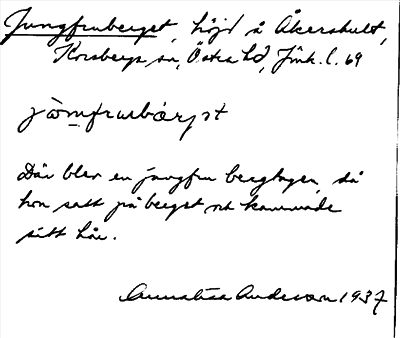 Jungfruberget, höjd å Åkershult,
Korsberga sn, Östra hd, Jönk. l. 69
jòmfrubárjət
Där blev en jungfru bergtagen, då
hon satt på berget och kammade
sitt hår.
Annalisa Anderson 1937